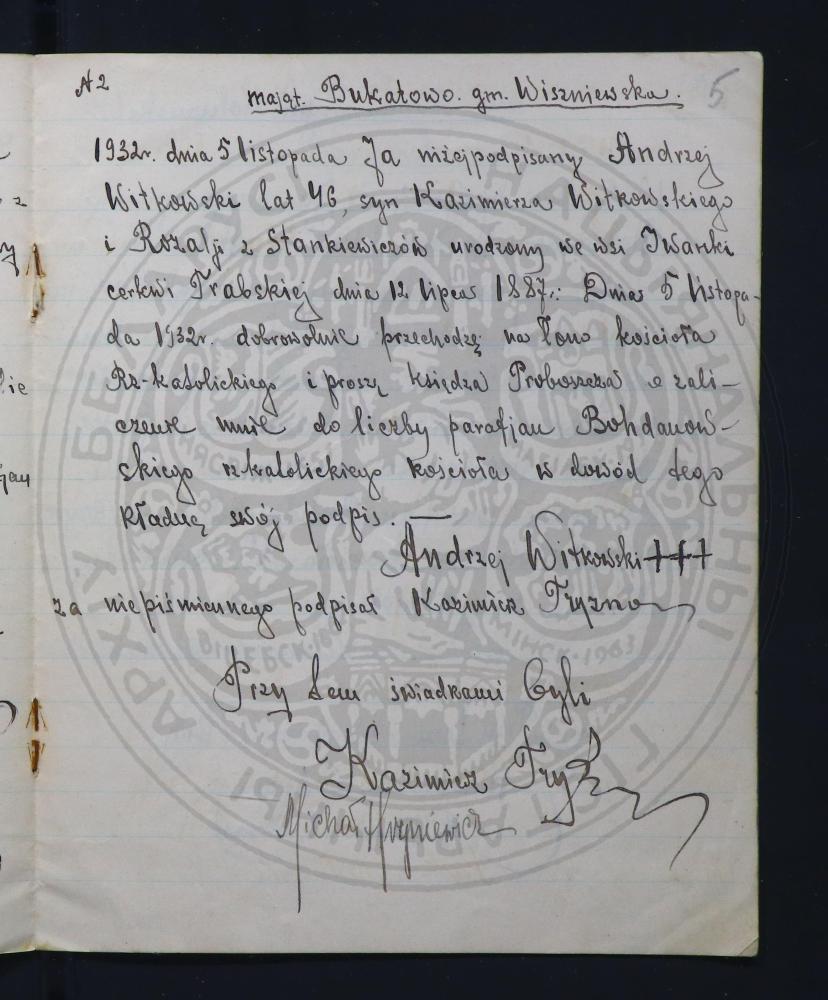 N2
mająt. Bukatowo. gm. Wiszniewska.
5
1932r. dnia 5 listopada Ja niżejpodpisany Andrzej
Witkowski lat 46, syn Kazimierza Witkowskiego
i Rozalji z Stankiewiczów urodzony we wsi Iwaszki
cerkwi Trabskiej dnia 12 lipca 1887r.: Dnia 5 listopa-
da 1932r. dobrowolnie przechodzę na łono kościoła
Rz-katolickiego i proszę księdza Proboszcza o zali-
czenie mnie do liczby parafjan Bohdanow-
skiego rzkatolickiego kościoła w dowód tego
kładnę swój podpis. —
Andrzej Witkowski +++
za niepiśmiennego podpisał Kazimierz Tryzno
Przy tem świadkami byli
Kazimierz
Michał Hryniewicz